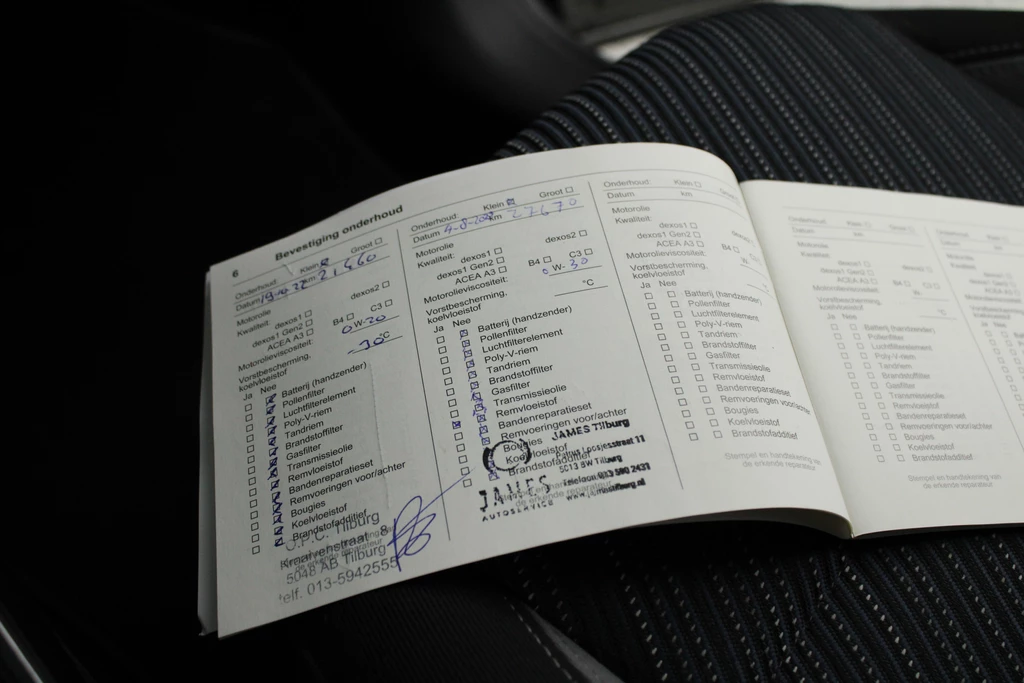 6 Bevestiging onderhoud
Onderhoud: Klein Groot
Datum km 21460
Motorolie
Kwaliteit: dexos1 dexos2
dexos1 Gen2
ACEA A3 B4 C3
Motorolieviscositeit: 0 W-20
Vorstbescherming, koelvloeistof -30 °C
Ja Nee
Batterij (handzender)
Pollenfilter
Luchtfilterelement
Poly-V-riem
Tandriem
Brandstoffilter
Gasfilter
Transmissieolie
Remvloeistof
Bandenreparatieset
Remvoeringen voor/achter
Bougies
Koelvloeistof
Brandstofadditief
J.P.C. Tilburg
Kraaivenstraat 8
5048 AB Tilburg
Telf. 013-5942555
Onderhoud: Klein Groot
Datum 4-8-2023 km 27670
Motorolie
Kwaliteit: dexos1 dexos2
dexos1 Gen2
ACEA A3 B4 C3
Motorolieviscositeit: 0 W-30
Vorstbescherming, koelvloeistof °C
Ja Nee
Batterij (handzender)
Pollenfilter
Luchtfilterelement
Poly-V-riem
Tandriem
Brandstoffilter
Gasfilter
Transmissieolie
Remvloeistof
Bandenreparatieset
Remvoeringen voor/achter
Bougies
Koelvloeistof
Brandstofadditief
JAMES Tilburg
5013 BW Tilburg
Telefoon 013 580 2431
www.jamestilburg.nl
JAMES
AUTOSERVICE
Onderhoud: Klein Groot
Datum km
Motorolie
Kwaliteit: dexos1 dexos2
dexos1 Gen2
ACEA A3 B4 C3
Motorolieviscositeit: W-
Vorstbescherming, koelvloeistof °C
Ja Nee
Batterij (handzender)
Pollenfilter
Luchtfilterelement
Poly-V-riem
Tandriem
Brandstoffilter
Gasfilter
Transmissieolie
Remvloeistof
Bandenreparatieset
Remvoeringen voor/achter
Bougies
Koelvloeistof
Brandstofadditief
Stempel en handtekening van
de erkende reparateur
Onderhoud: Klein Groot
Datum km
Motorolie
Kwaliteit: dexos1 dexos2
dexos1 Gen2
ACEA A3 B4 C3
Motorolieviscositeit: W-
Vorstbescherming, koelvloeistof °C
Ja Nee
Batterij (handzender)
Pollenfilter
Luchtfilterelement
Poly-V-riem
Tandriem
Brandstoffilter
Gasfilter
Transmissieolie
Remvloeistof
Bandenreparatieset
Remvoeringen voor/achter
Bougies
Koelvloeistof
Brandstofadditief
Stempel en handtekening van
de erkende reparateur